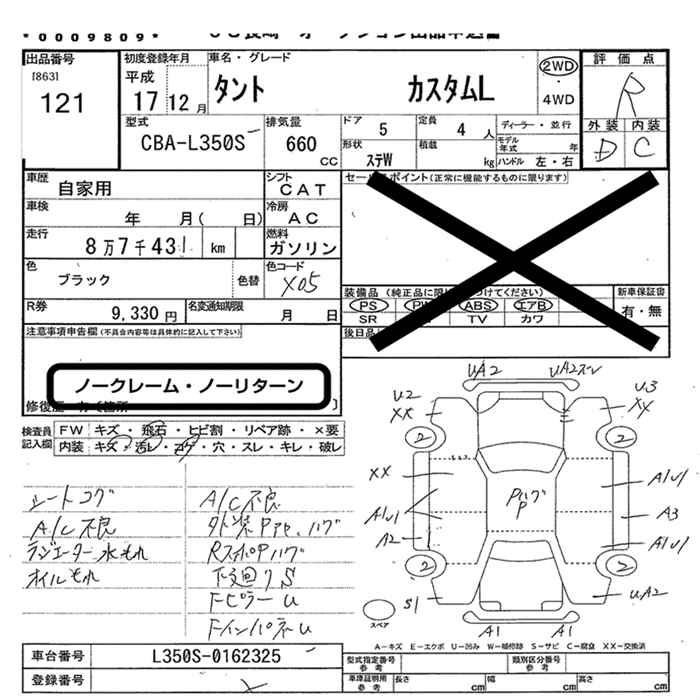 * 0009809 *
出品番号
[863]
121
初度登録年月
平成
17 12 月
車名・グレード
タント カスタムL
2WD
・
4WD
評価点
R
外装 内装
D C
型式
CBA-L350S
排気量
660 CC
ドア
5
定員
4 人
形状
ステW
積載
kg
ディーラー・並行
モデル年式 年
ハンドル 左・右
車歴
自家用
シフト
CAT
車検
年 月( 日)
冷房
AC
走行
8万7千431 km
燃料
ガソリン
色
ブラック
色替
色コード
X05
R券
9,330 円
名変通知期限
月 日
セールスポイント(正常に機能するものに限ります)
装備品
PS
ABS
エアB
SR
TV
カワ
新車保証書
有・無
後日品
注意事項申告欄(不具合内容等は具体的に記入して下さい)
ノークレーム・ノーリターン
検査員記入欄
FW キズ・飛石・ヒビ割・リペア跡・×要
内装 キズ・汚レ・コゲ・穴・スレ・キレ・破レ
シートコゲ
A/C不良
ラジエーター水もれ
オイルもれ
A/C不良
RスポPハゲ
下廻りS
FピラーU
FインパネU
UA2
U2
XX
U3
XX
2
2
XX
A1U1
A2
Pハゲ
P
A1U1
A3
A1U1
2
2
S1
UA2
A1
A1
スペア
A-キズ E-エクボ U-凹み W-補修跡 S-サビ C-腐食 XX-交換済
車台番号
L350S-0162325
登録番号
型式指定番号
参考
類別区分番号
参考
車庫証明用
参考
長さ cm
幅 cm
高さ cm